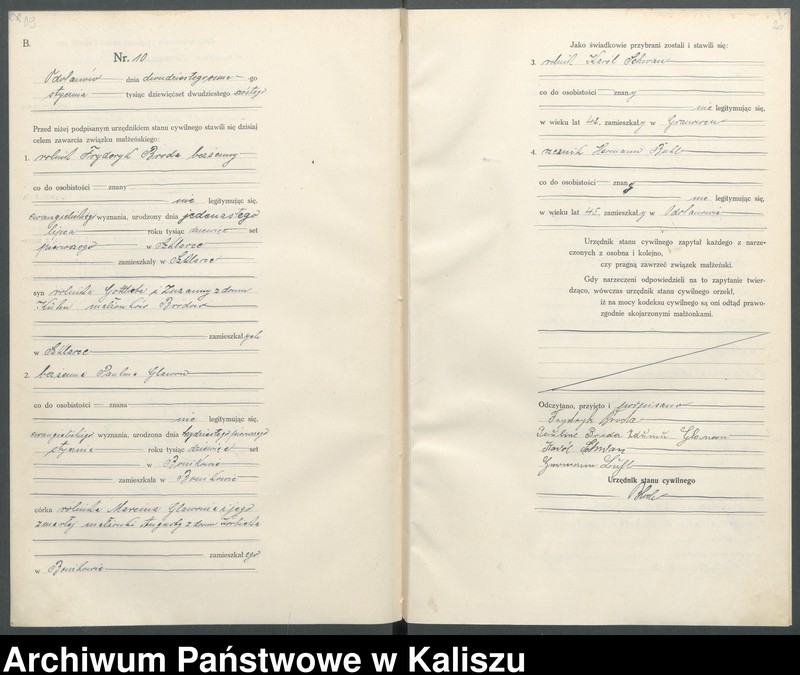 B.
Nr. 10
Odolanów dnia dwudziestego ósmego
stycznia tysiąc dziewięćset dwudziestego szóstego
Przed niżej podpisanym urzędnikiem stanu cywilnego stawili się dzisiaj
celem zawarcia związku małżeńskiego:
1. rolnik Fryderyk Broda bezżenny
co do osobistości znany
nie legitymując się,
ewangelickiego wyznania, urodzony dnia jedenastego
lipca roku tysiąc dziewięć set
pierwszego w
zamieszkały w
syn rolnika Gottlieba i Zuzanny z domu
Kuhn małżonków Brodów
zamieszkałych
w
2. bezżenna Paulina Glawon
co do osobistości znana
nie legitymując się,
ewangelickiego wyznania, urodzona dnia trzydziestego pierwszego
stycznia roku tysiąc dziewięć set
w Bonikowie
zamieszkała w Bonikowie
córka rolnika Marcina Glawona i jego
zmarłej małżonki Augusty z domu
zamieszkałego
w Bonikowie
Jako świadkowie przybrani zostali i stawili się:
3. rolnik Karol Schwan
co do osobistości znany
nie legitymując się,
w wieku lat 42, zamieszkały w
4. rzeźnik Hermann
co do osobistości znany
nie legitymując się,
w wieku lat 45, zamieszkały w Odolanowie
Urzędnik stanu cywilnego zapytał każdego z narze-
czonych z osobna i kolejno,
czy pragną zawrzeć związek małżeński.
Gdy narzeczeni odpowiedzieli na to zapytanie twier-
dząco, wówczas urzędnik stanu cywilnego orzekł,
iż na mocy kodeksu cywilnego są oni odtąd prawo-
zgodnie skojarzonymi małżonkami.
Odczytano, przyjęto i podpisano
Frydryk Broda
Pauline Broda Glawon
Karol Schwan
Hermann
Urzędnik stanu cywilnego
Archiwum Państwowe w Kaliszu